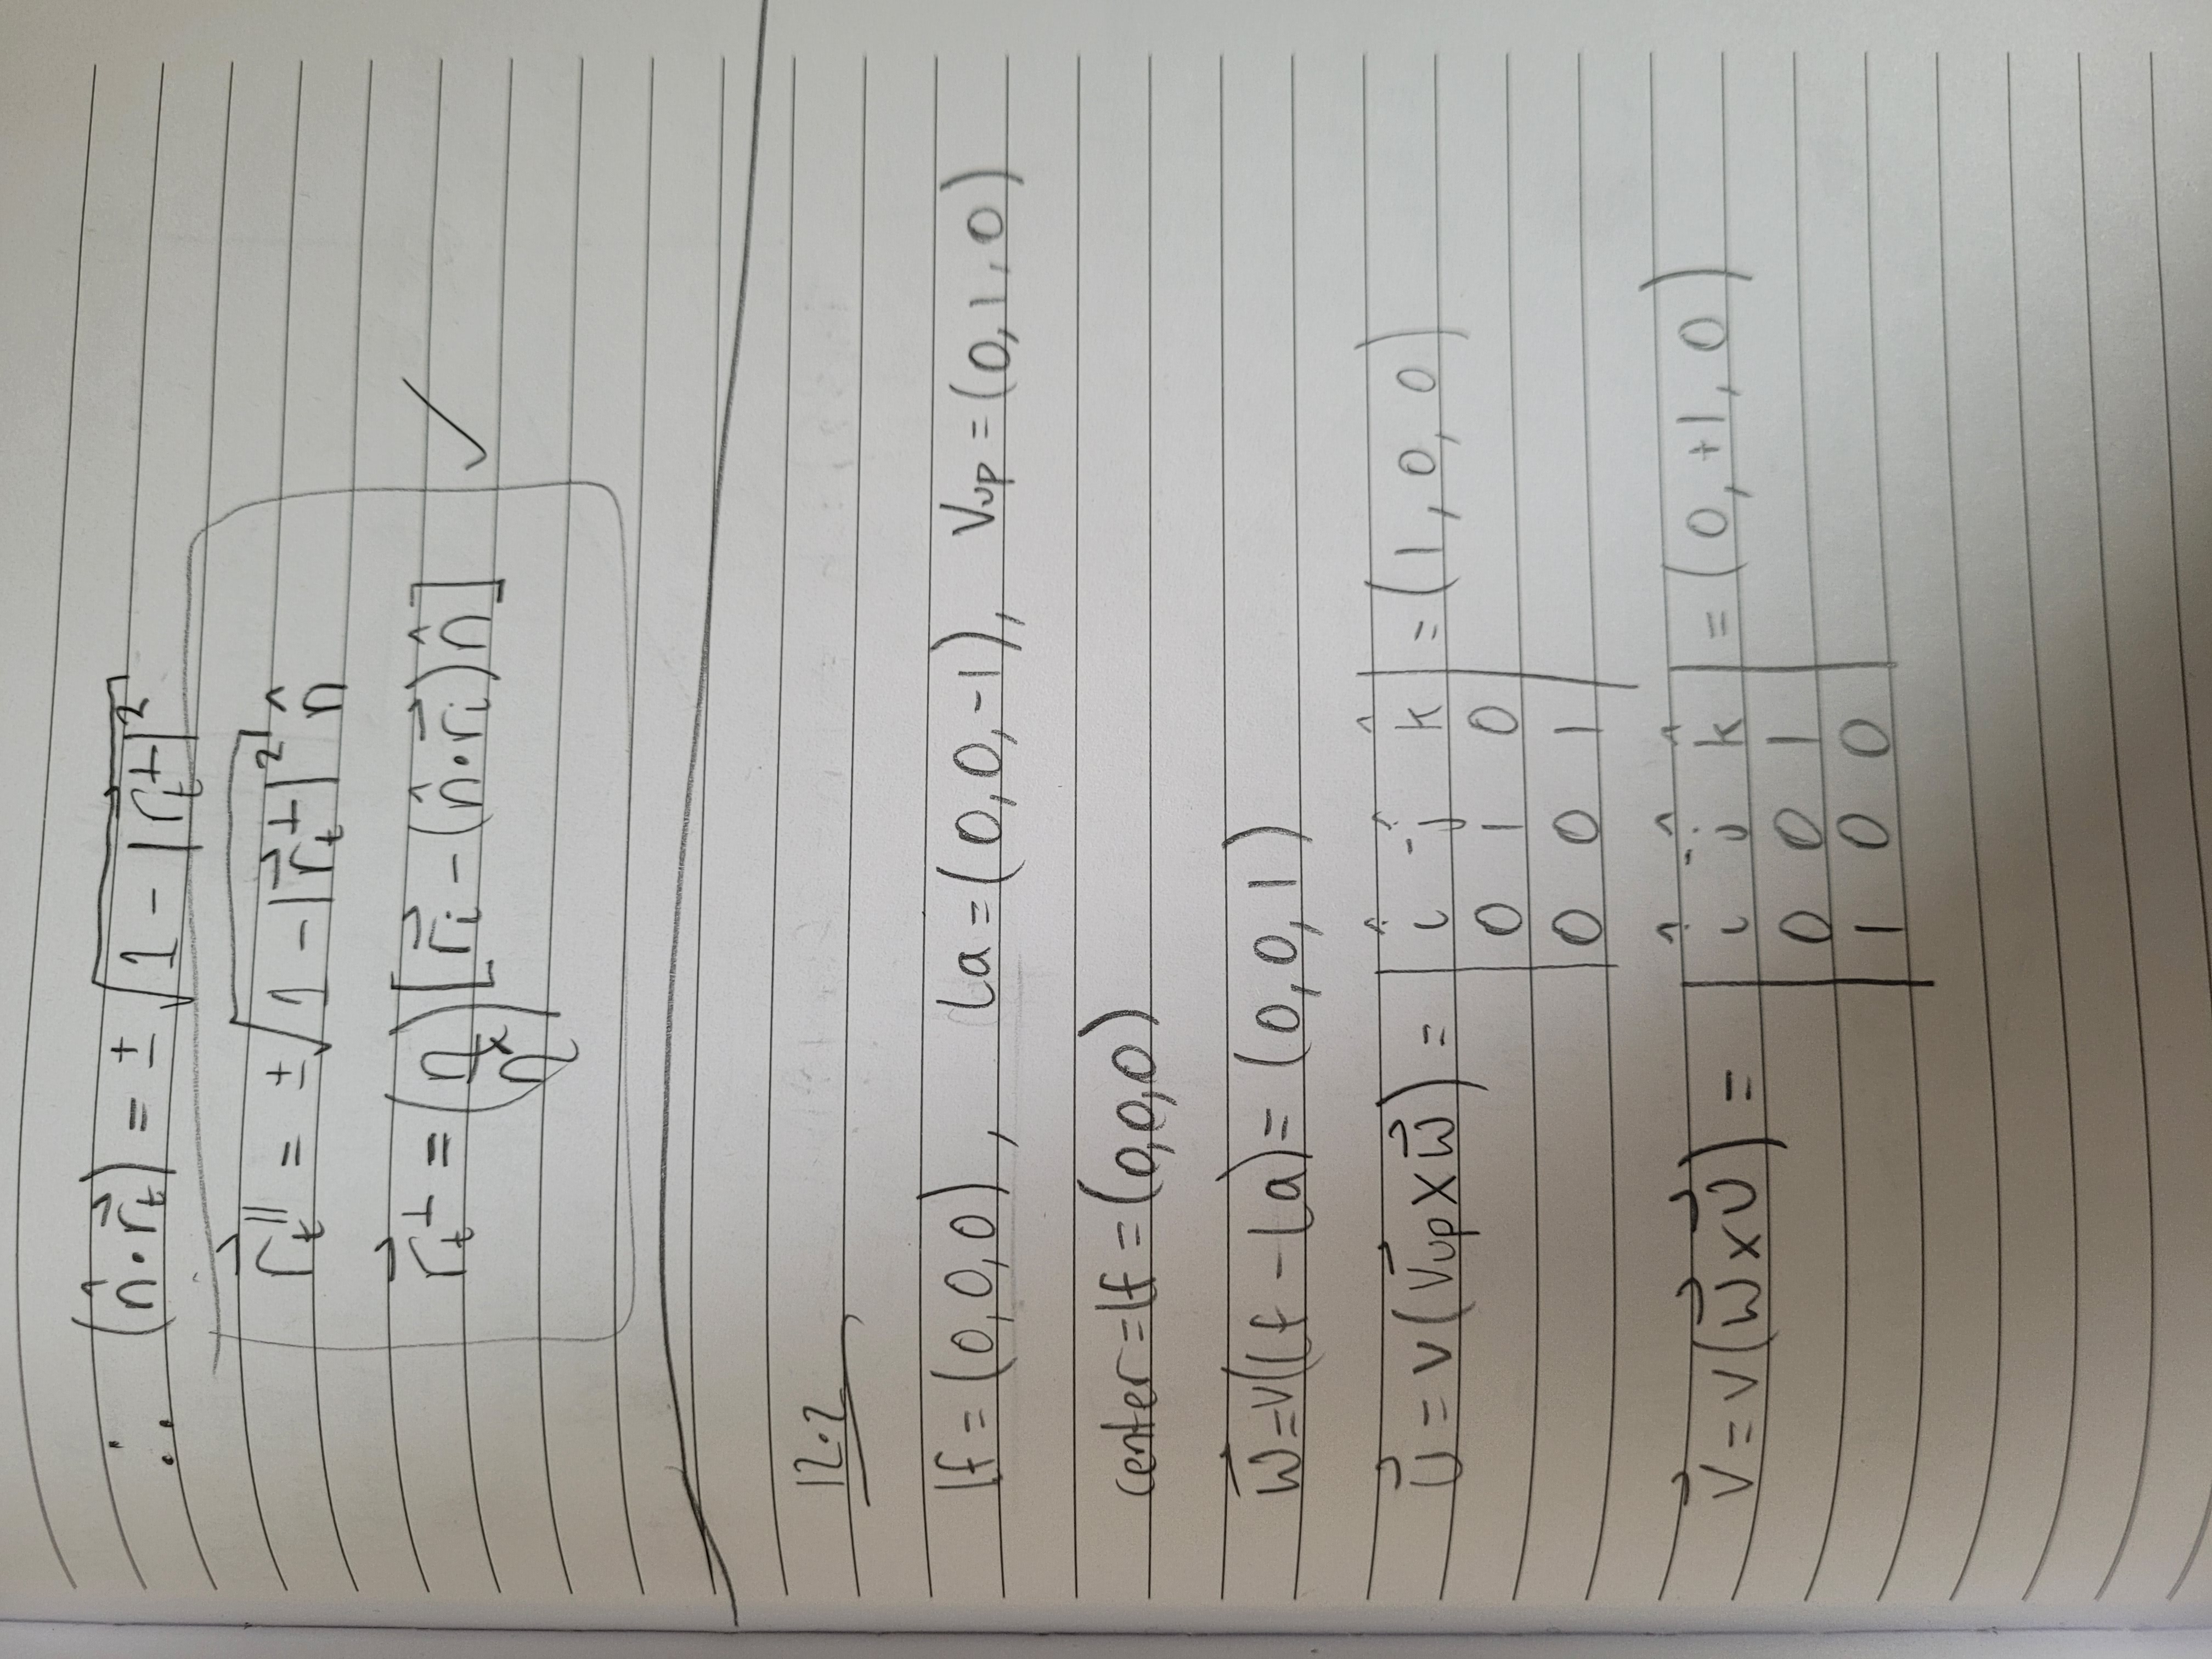 ∴ (n̂·r⃗_t) = ± √(1 - |r⃗_t^⊥|²)
r⃗_t^∥ = ±√(1 - |r⃗_t^⊥|²) n̂
r⃗_t^⊥ = (η/η^x) [r⃗_i - (n̂·r⃗_i) n̂] ✓
12.2
lf = (0, 0, 0), la = (0, 0, -1), Vup = (0, 1, 0)
center = lf = (0,0,0)
w⃗ = v(lf - la) = (0, 0, 1)
u⃗ = v(v⃗up × w⃗) = | î -ĵ k̂ | = (1, 0, 0)
0 1 0
0 0 1
v⃗ = v(w⃗ × u⃗) = | î -ĵ k̂ | = (0, +1, 0)
0 0 1
1 0 0